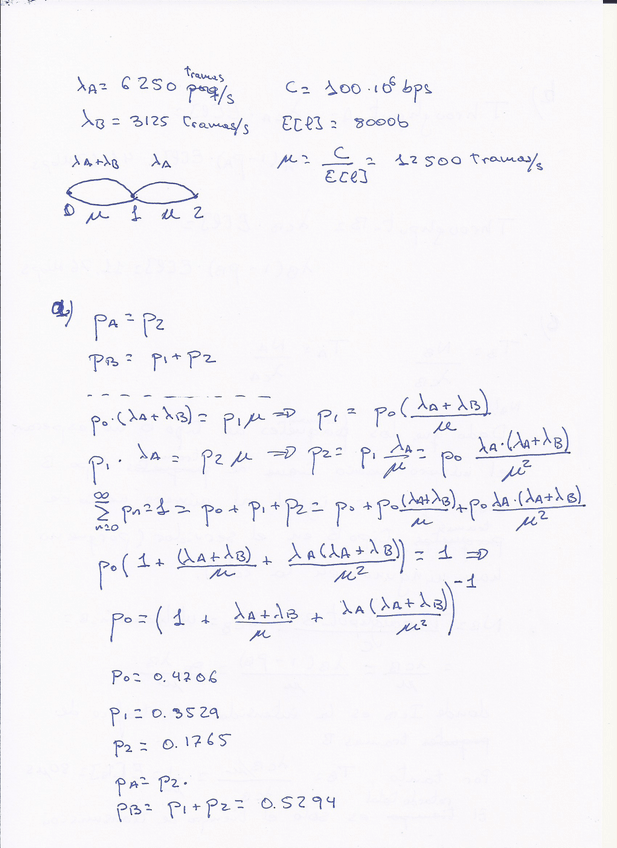 λA = 6250 tramas/s C = 100·10⁶ bps
λB = 3125 tramas/s E[l] = 8000b
λA+λB λA μ = C/E[l] = 12500 tramas/s
0 μ 1 μ 2
a) pA = p2
pB = p1 + p2
p0·(λA+λB) = p1 μ => p1 = p0 (λA+λB)/μ
p1 · λA = p2 μ => p2 = p1 λA/μ = p0 λA·(λA+λB)/μ²
∑n=0^∞ pn = 1 = p0 + p1 + p2 = p0 + p0 (λA+λB)/μ + p0 λA·(λA+λB)/μ²
p0 ( 1 + (λA+λB)/μ + λA(λA+λB)/μ² ) = 1 =>
p0 = ( 1 + λA+λB/μ + λA(λA+λB)/μ² )^-1
p0 = 0.4706
p1 = 0.3529
p2 = 0.1765
pA = p2.
pB = p1 + p2 = 0.5294